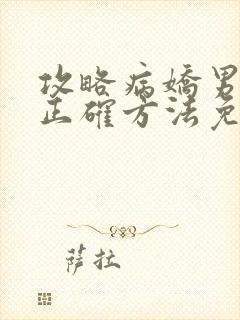 攻略病嬌男
正確方法免
萨拉